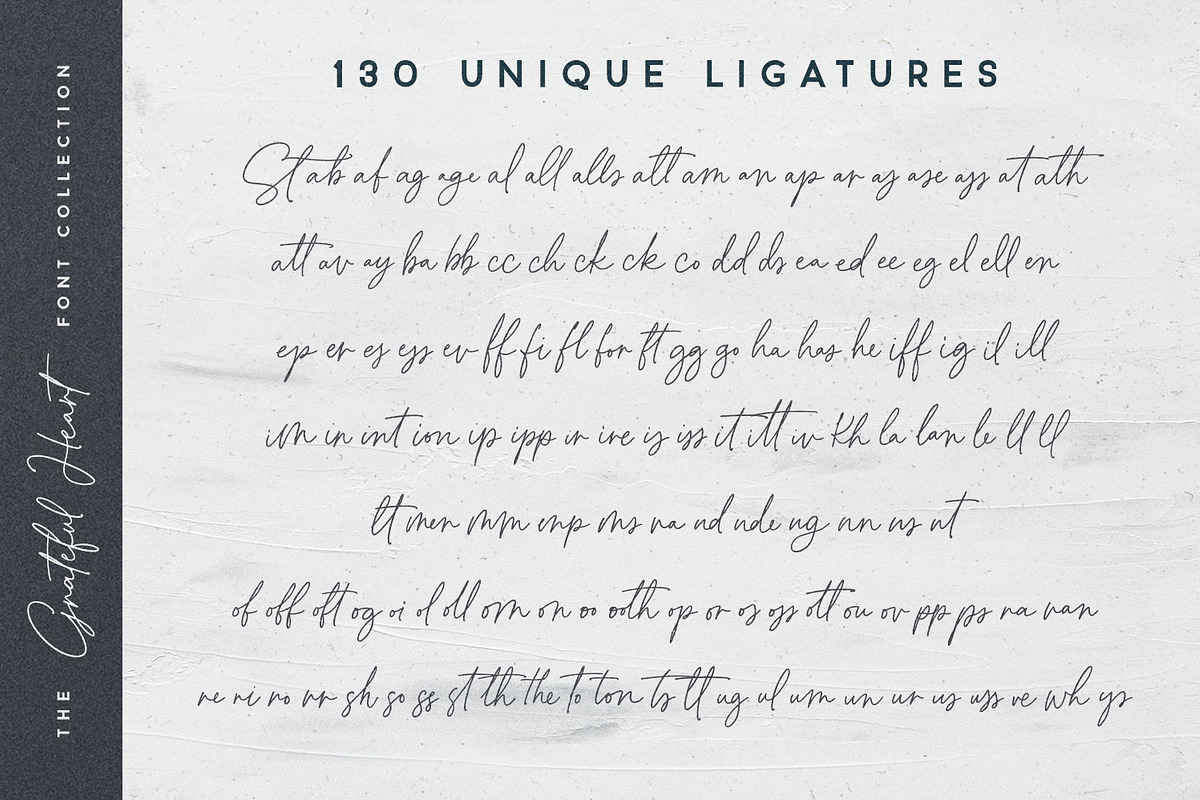 THE Grateful Heart FONT COLLECTION
130 UNIQUE LIGATURES
St ab af ag age al all alls alt am an ap ar as ase ass at ath
att av ay ba bb cc ch ck ck co dd ds ea ed ee eg el ell en
ep er es ess ev ff fi fl for ft gg go ha has he iff ig il ill
im in int ion ip ipp ir ire is iss it itt iv kh la lan le ll ll
lt men mm emp ms na nd nde ng nn ns nt
of off oft og oi ol oll om on oo ooth op or os oss ott ou ov pp ps ra ran
re ri ro rr sh so ss st th the to ton ts tt ug ul um un ur us uss ve wh ys